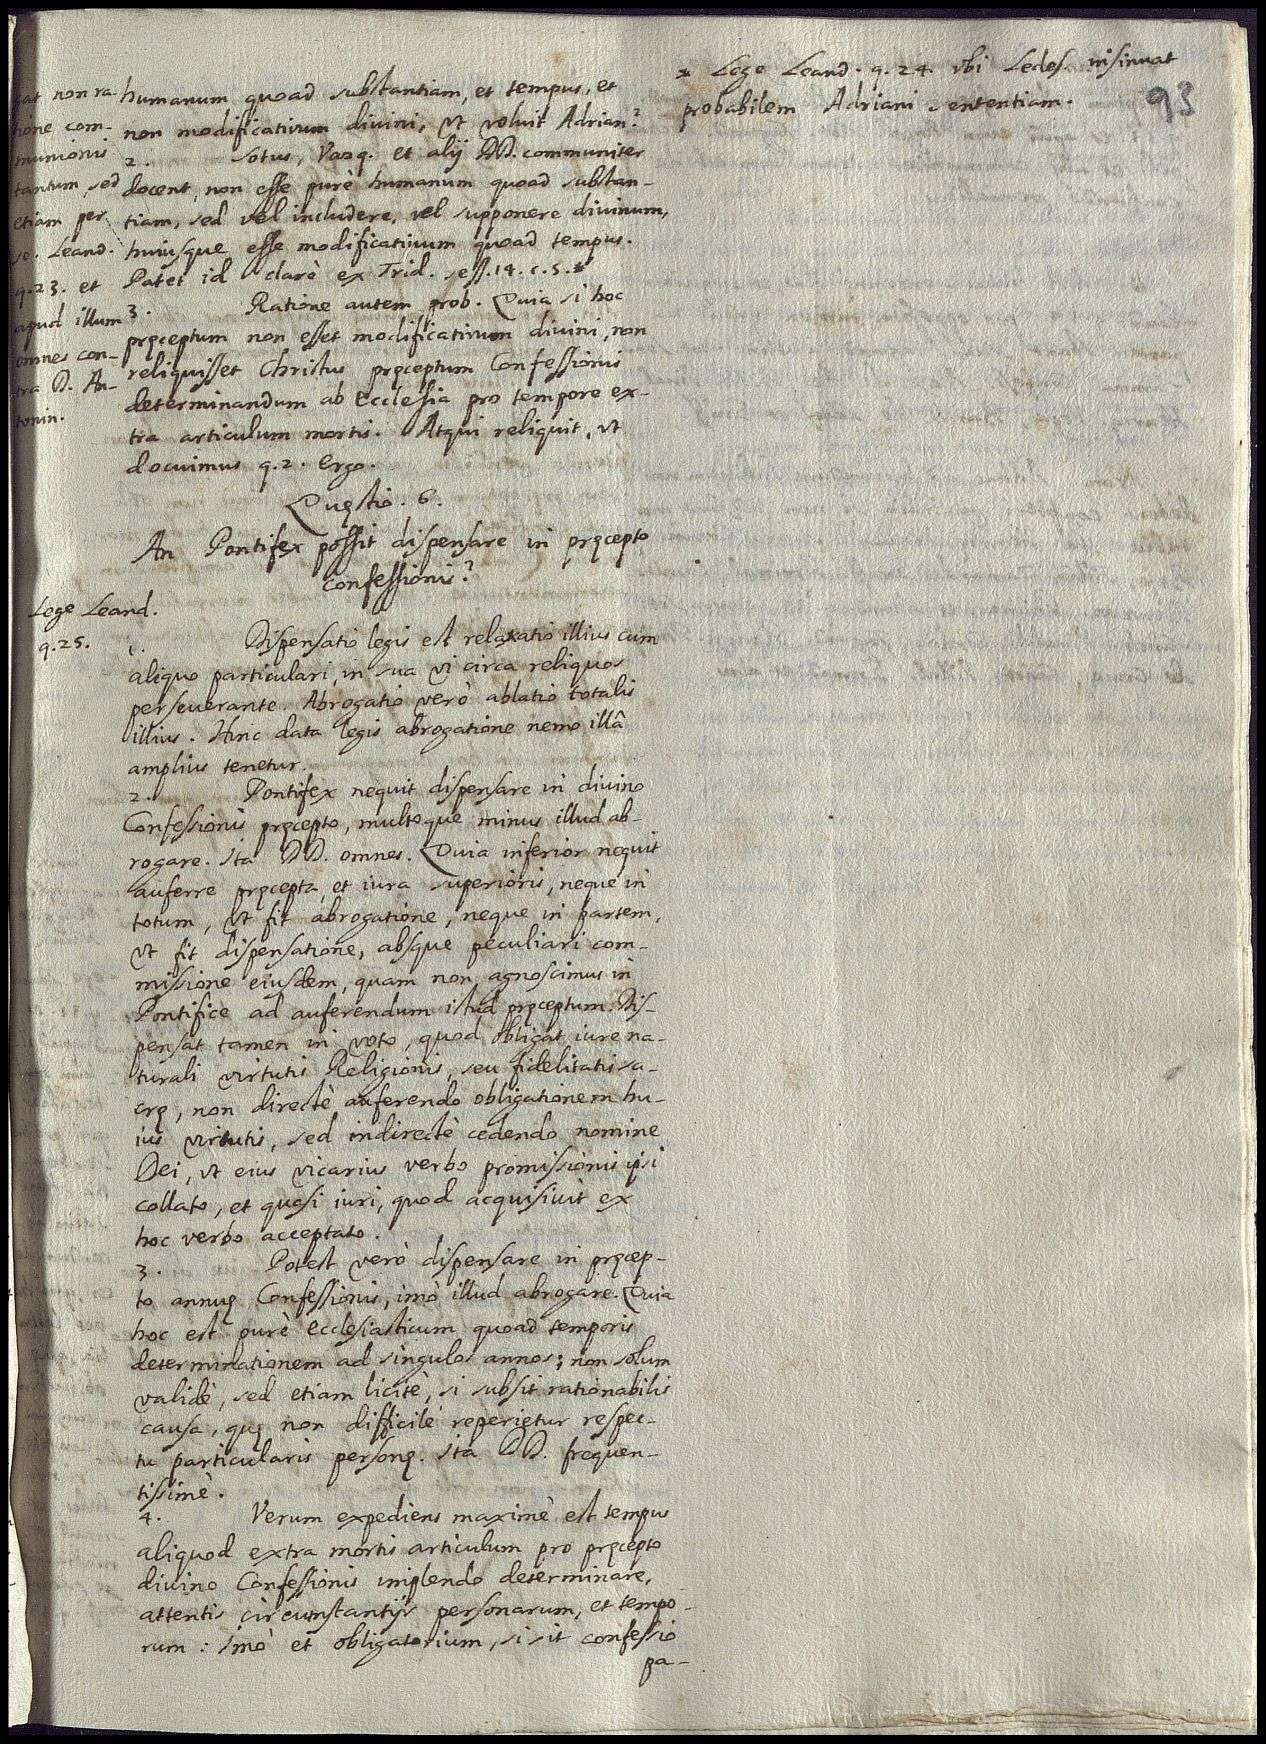 gat non ra-
tione com-
munionis
tantum, sed
etiam per
se. Leand.
q.23. et
apud illum
omnes con-
tra D. An-
tonin.
humanum quoad substantiam, et tempus, et
non modificativum divini, vt voluit Adrian?
2. Sotus, Vazq. et alij DD. communiter
docent, non esse purè humanum quoad substan-
tiam, sed vel includere, vel supponere divinum,
huiusque esse modificativum quoad tempus.
Patet id clarè ex Trid. sess.14.c.5.*
3. Ratione autem prob. Quia si hoc
pręceptum non esset modificativum divini, non
reliquisset Christus pręceptum Confessionis
determinandum ab Ecclesia pro tempore ex-
tra articulum mortis. Atqui reliquit, vt
docuimus q.2. Ergo.
Quęstio. 6.
An Pontifex possit dispensare in pręcepto
confessionis?
Lege Leand.
q.25.
1. Dispensatio legis est relaxatio illius cum
aliquo particulari, in sua vi circa reliquos
perseuerante. Abrogatio verò ablatio totalis
illius. Hinc data legis abrogatione nemo illâ
amplius tenetur.
2. Pontifex nequit dispensare in divino
Confessionis pręcepto, multoque minus illud ab-
rogare. Ita DD. omnes. Quia inferior nequit
auferre pręcepta, et iura superioris, neque in
totum, vt fit abrogatione, neque in partem,
vt fit dispensatione, absque peculiari com-
missione eiusdem, quam non agnoscimus in
Pontifice ad auferendum istud pręceptum. Dis-
pensat tamen in voto, quod obligat iure na-
turali virtutis Religionis, seu fidelitatis sa-
crę, non directè auferendo obligationem hu-
ius virtutis, sed indirectè cedendo nomine
Dei, vt eius vicarius verbo promissionis ipsi
collato, et quasi iuri, quod acquisiuit ex
hoc verbo acceptato.
3. Potest verò dispensare in pręcep-
to annuę Confessionis, imò illud abrogare. Quia
hoc est purè ecclesiasticum quoad temporis
determinationem ad singulos annos; non solum
validè, sed etiam licitè, si subsit rationabilis
causa, quę non difficilè reperietur respec-
tu particularis personę. Ita DD. frequen-
tissimè.
4. Verum expediens maximè est tempus
aliquod extra mortis articulum pro pręcepto
divino Confessionis implendo determinare,
attentis circumstantijs personarum, et tempo-
rum: Imò et obligatorium, si sit confessio
pa-
* Lege Leand. q.24. vbi Ledes. insinuat
probabilem Adriani sententiam.
93